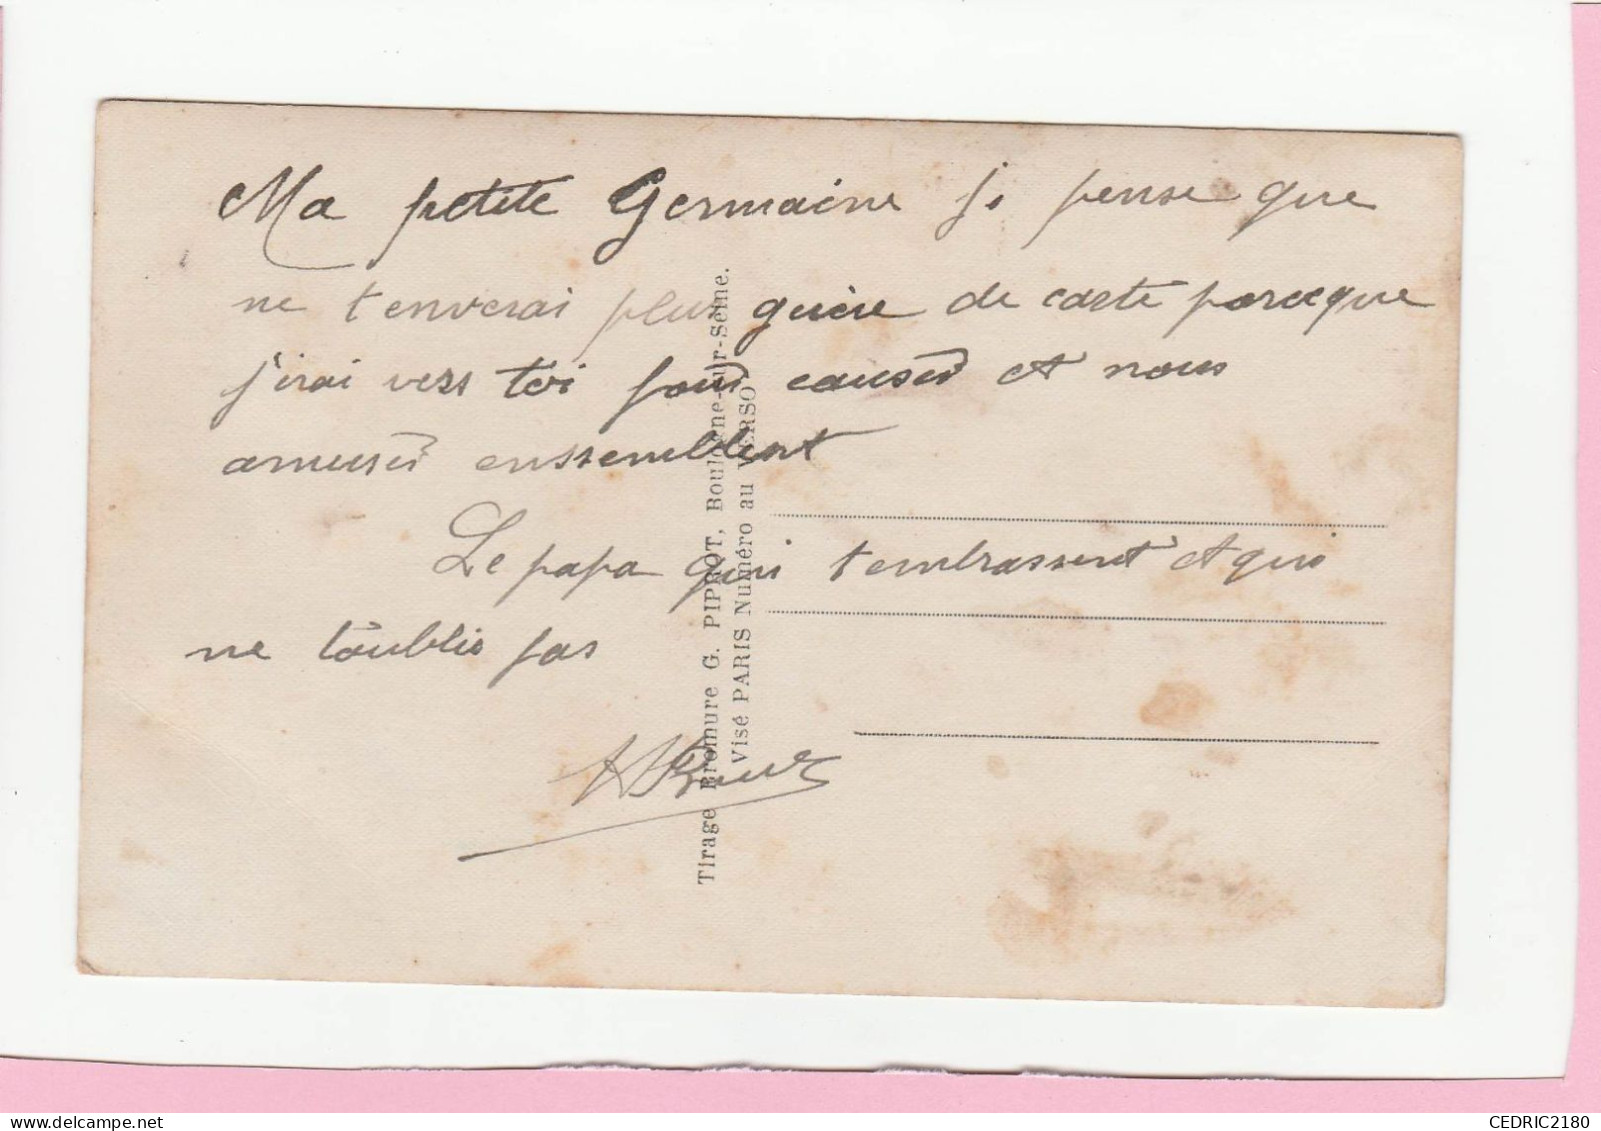 Ma petite Germaine je pense que
ne t'enverai plus guère de carte parceque
j'irai vers toi pour causer et nous
amuser enssemblent
Le papa qui t'embrassent et qui
ne t'oublie pas
Tirage Bromure G. PIPROT, Boulogne-sur-Seine.
Visé PARIS Numéro au VERSO
CEDRIC2180